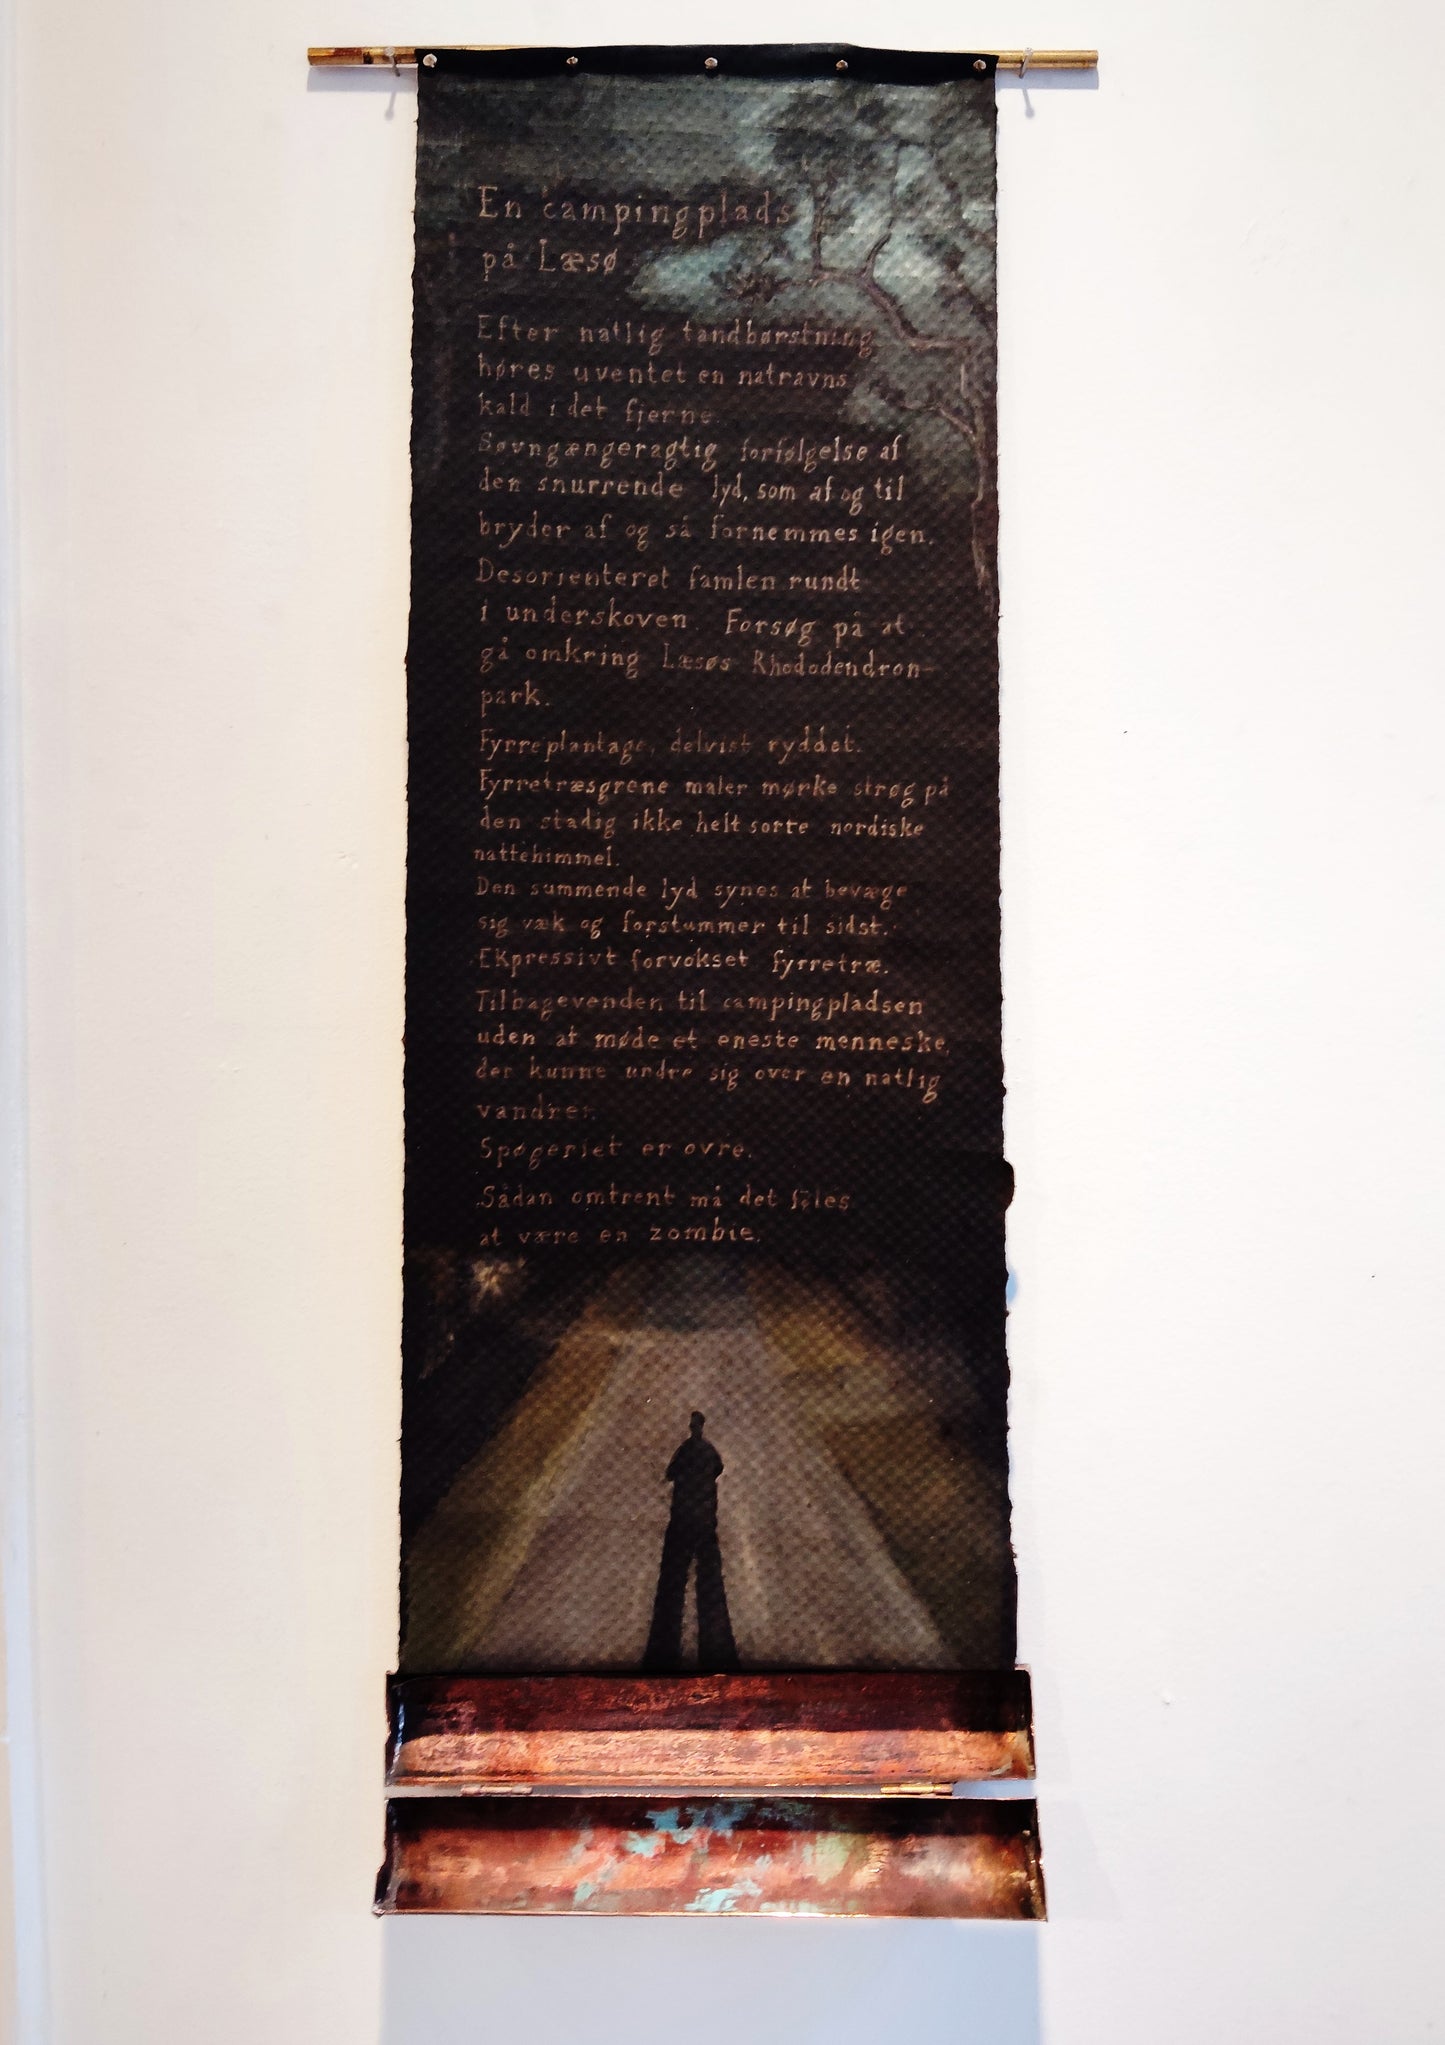 En campingplads
på Læsø
Efter natlig tandbørstning
høres uventet en natravns
kald i det fjerne.
Søvngængeragtig forfølgelse af
den snurrende lyd, som af og til
bryder af og så fornemmes igen.
Desorienteret famlen rundt
i underskoven. Forsøg på at
gå omkring Læsøs Rhododendron-
park.
Fyrreplantage, delvist ryddet.
Fyrretræsgrene maler mørke strøg på
den stadig ikke helt sorte nordiske
nattehimmel.
Den summende lyd synes at bevæge
sig væk og forstummer til sidst.
Ekpressivt forvokset fyrretræ.
Tilbagevenden til campingpladsen
uden at møde et eneste menneske,
der kunne undre sig over en natlig
vandrer.
Spøgeriet er ovre.
Sådan omtrent må det føles
at være en zombie.